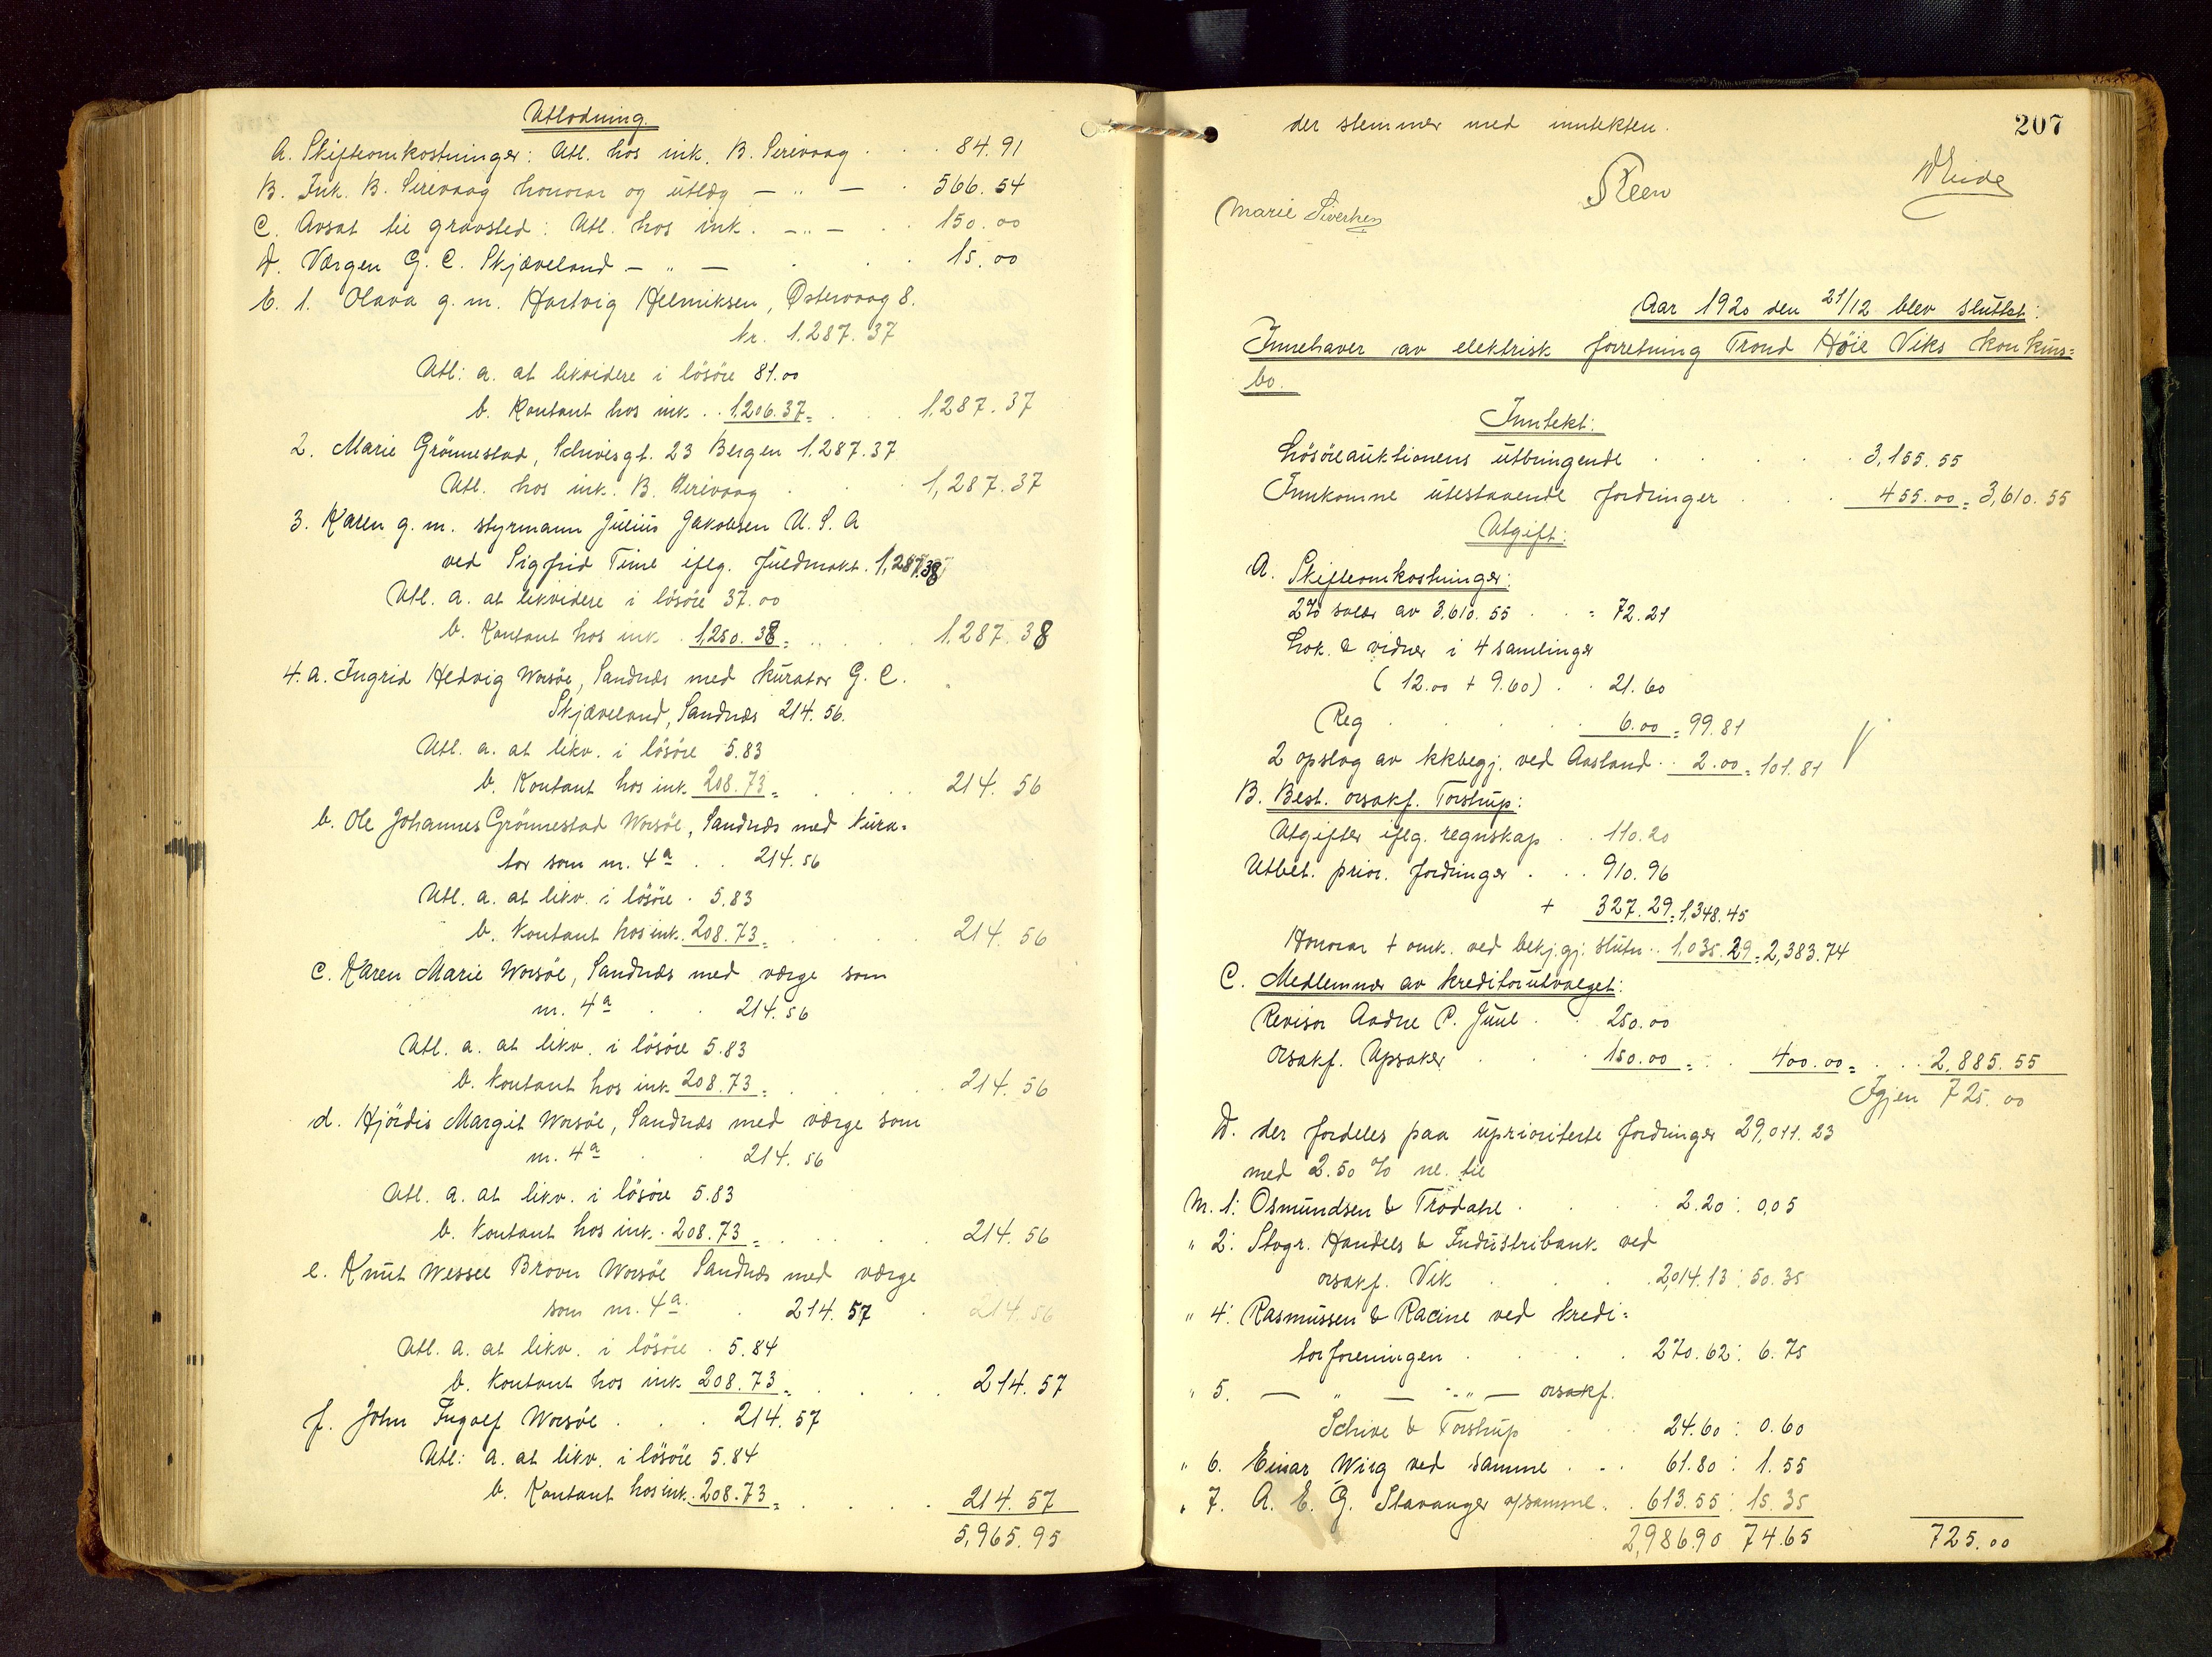 Utlodning.
A. Skifteomkostninger: Utl. hos ink. B. Sirevaag . . . 84.91
B. Ink. B. Sirevaag honorar og utlæg — " — . 566.54
C. Avsat til gravsted: Utl. hos ink. — " — . . 150.00
D. Værgen G. C. Skjæveland — " — . . . 15.00
E. 1. Olava g. m. Hartvig Helmiksen, Østervaag 8.
kr. 1.287.37
Utl: a. at likvidere i lösöre 81.00
b. Kontant hos ink. . 1.206.37 = . . . 1,287.37
2. Marie Grönnestad, Schivesgt. 23 Bergen 1.287.37
Utl. hos ink. B. Sirevaag . . . 1,287.37
3. Karen g. m. styrmann Julius Jakobsen U. S. A
ved Sigfrid Time iflg. fuldmakt. 1,287.38
Utl. a. at likvidere i lösöre 37.00
b. Kontant hos ink. . 1,250.38 = . . . . 1.287.38
4. a. Ingrid Hedvig Worsöe, Sandnæs med kurator G. C.
Skjæveland, Sandnæs 214.56.
Utl. a. at likv. i lösöre 5.83
b. Kontant hos ink. 208.73 = . . . . 214.56
b. Ole Johannes Grönnestad Worsöe, Sandnæs med kura=
tor som nr. 4a . . 214.56
Utl. a. at likv. i lösöre . 5.83
b. Kontant hos ink. 208.73 = . . . . 214.56
c. Karen Marie Worsöe, Sandnæs med værge som
nr. 4a . . 214.56
Utl. a. at likv. i lösöre 5.83
b. Kontant hos ink. 208.73 = . . . . 214.56
d. Hjördis Margit Worsöe, Sandnæs med værge som
nr. 4a . . 214.56
Utl. a. at likv. i lösöre 5.83
b. Kontant hos ink. . 208.73 = . . . . 214.56
e. Knut Wessel Brown Worsöe Sandnæs med værge
som nr. 4a . 214.57 . 214.56
Utl. a. at likv. i lösöre . 5.84
b. Kontant hos ink. 208.73 = . . . . 214.57
f. John Ingolf Worsöe . . . 214.57
Utl: a. at likv. i lösöre 5.84
b. Kontant hos ink. . 208.73 = . . . . 214.57
5,965.95
207
der stemmer med inntekten.
Steen
Marie Siverhen
Aar 1920 den 21/12 blev sluttet:
Innehaver av elektrisk forretning Trond Höie Viks konkurs=
bo.
Inntekt:
Lösöreauktionens utbringende . . . . . 3,155.55
Innkomne utestaaende fordringer . . . 455.00 = 3,610.55
Utgift:
A. Skifteomkostninger:
2% salær av 3,610.55 . . = 72.21
Lok. & vidner i 4 samlinger
( 12.00 + 9.60) . . 21.60
Reg . . . . . 6.00 = 99.81
2 opslag av kkbegj. ved Aasland . . 2.00 = 101.81
B. Best. orsakf. Torstrup:
Utgifter iflg. regnskap . . 110.20
Utbet. prior. fordringer . . . 910.96
+ 327.29 = 1,348.45
Honorar + omk. ved bekj.gj. slutn . . 1,035.29 = 2,383.74
C. Medlemmer av kreditorutvalget:
Revisor Aadne P. Juul . . 250.00
orsakf. Upsaker . . . 150.00 = . . 400.00 = . . 2,885.55
Igjen 725.00
D. der fordeles paa uprioriterte fordringer 29,011.23
med 2.50 % nl. til
Nr. 1: Osmundsen & Trodahl . . . . 2.20 : 0,05
" 2: Stvgr. Handels & Industribank ved
orsakf. Vik . . . 2,014.13 : 50.35
" 4: Rasmussen & Racine ved kredi=
torforeningen . . . . 270.62 : 6.75
" 5. — " — - " — orsakf.
Schive & Torstrup . . 24.60 : 0.60
" 6. Einar Wiig ved samme . . . 61.80 : 1.55
" 7. A. E. G. Stavanger v/samme . . 613.55 : 15.35
2,986.90 74.65 725.00